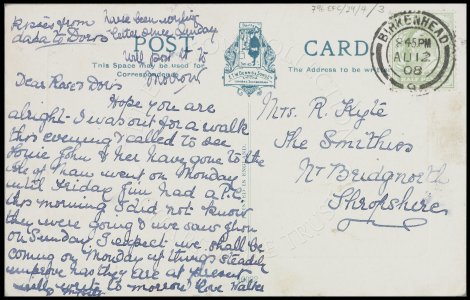 kisses from
dada to Doris
have been writing
letter since Sunday
will post it to
morrow
POST CARD
This space may be used for
Correspondence
The Address to be written
BIRKENHEAD
8.45PM
AU 12
08
Dear Rose & Doris
Hope you are
alright I was out for a walk
this evening I called to see
John & her have gone to the
Isle of man went on Monday
until Friday Jim had a P.C.
this morning I did not know
they were going I we saw them
on Sunday I expect we shall be
coming on Monday if things steadily
improve has they are at present
will write to morrow love Walter
Mrs. R. Kyte
The Smithies
Nr Bridgnorth
Shropshire